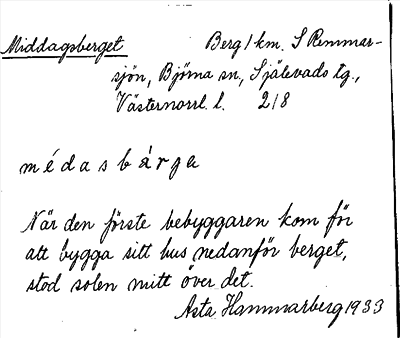 Middagsberget Berg 1 km. S Remmar-
sjön, Björna sn, Själevads tg.,
Västernorrl. l. 218
médasbárga
När den förste bebyggaren kom för
att bygga sitt hus nedanför berget,
stod solen mitt över det.
Asta Hammarberg 1933